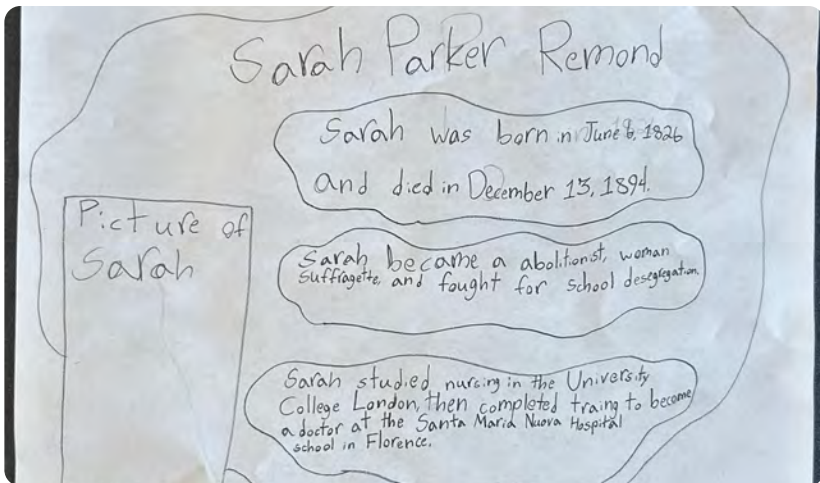 Sarah Parker Remond
Sarah was born in June 6, 1826
and died in December 13, 1894.
Picture of
Sarah
Sarah became a abolitionist, woman
suffragette, and fought for school desegregation.
Sarah studied nursing in the University
College London, then completed traing to become
a doctor at the Santa Maria Nuova Hospital
school in Florence.